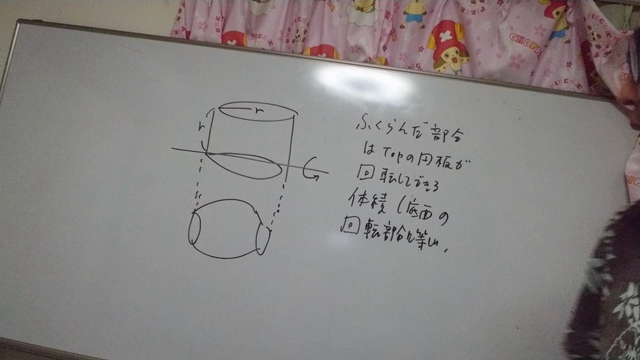 r
r
ふくらんだ部分
はTopの円板が
回転してできる
体積(底面の
回転部分に等しい。